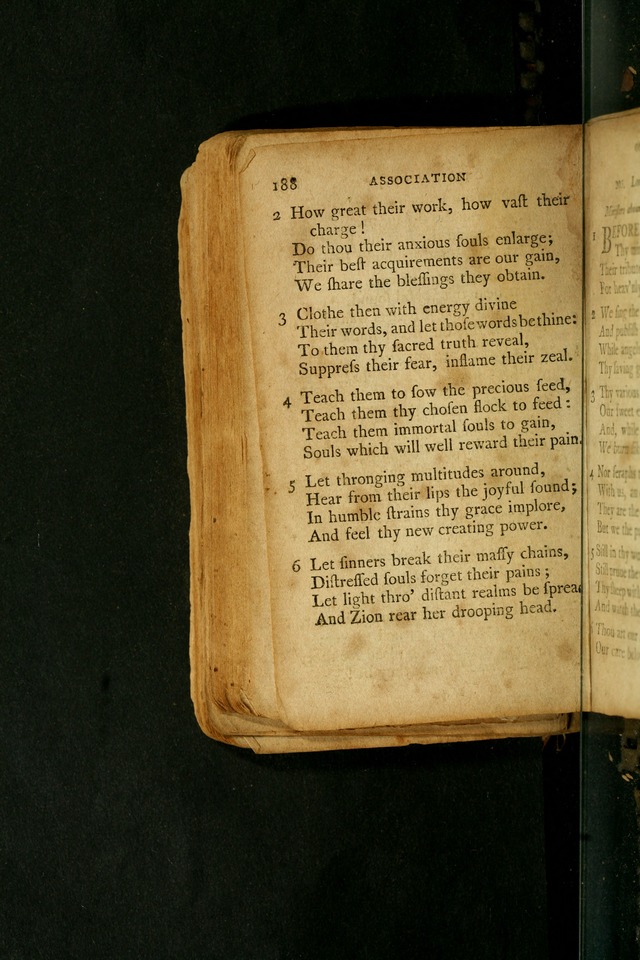 188 ASSOCIATION
2 How great their work, how vaſt their
charge!
Do thou their anxious ſouls enlarge;
Their beſt acquirements are our gain,
We ſhare the bleſſings they obtain.
3 Clothe then with energy divine
Their words, and let thoſe words be thine:
To them thy ſacred truth reveal,
Suppreſs their fear, inflame their zeal.
4 Teach them to ſow the precious ſeed,
Teach them thy choſen flock to feed:
Teach them immortal ſouls to gain,
Souls which will well reward their pain.
5 Let thronging multitudes around,
Hear from their lips the joyful ſound;
In humble ſtrains thy grace implore,
And feel thy new creating power.
6 Let ſinners break their maſſy chains,
Diſtreſſed ſouls forget their pains;
Let light thro' diſtant realms be ſprea
And Zion rear her drooping head.
1 BEFORE
Thy
Their
For
2 We ſing
And
While
Thy ſaving
3 Thy various
Our ſweet
And, while
We
4 Nor
With us, an
They are the
But we the
5 Still in thy
Still
Thy
And
Thou art our
Our care